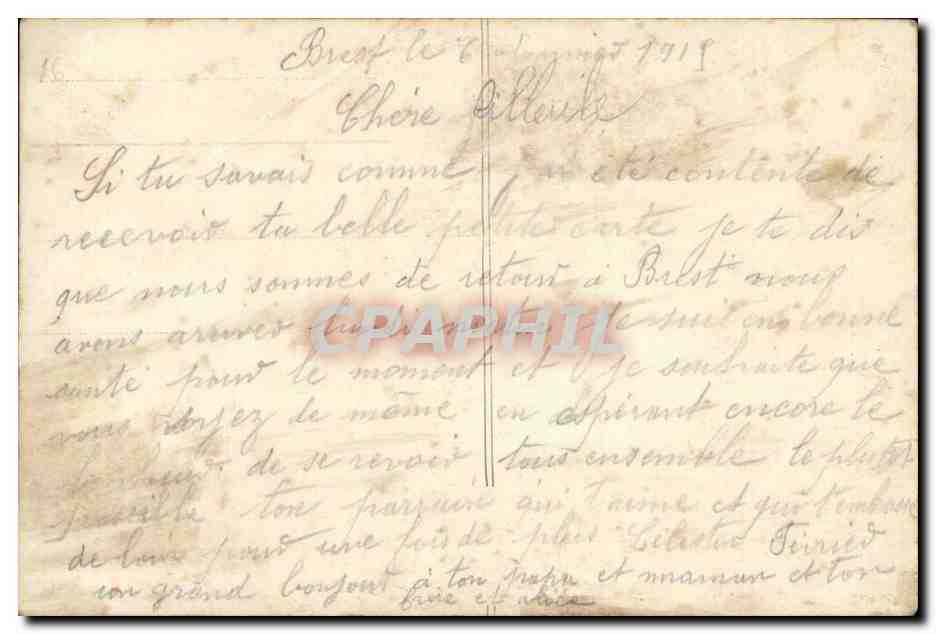 16
Brest le 1919
Chère filleule
Si tu savais comme j'ai été contente de
recevoir ta belle petite carte je te dis
que nous sommes de retour à Brest nous
avons arrivés et je suis en bonne
santé pour le moment et je souhaite que
vous soyez de même en espérant encore le
bonheur de se revoir tous ensemble le plus tôt
possible ton parrain qui t'aime et qui t'embrasse
de loin pour une fois de plus
un grand bonjour à ton papa et maman et ton
frère et
CPAPHIL